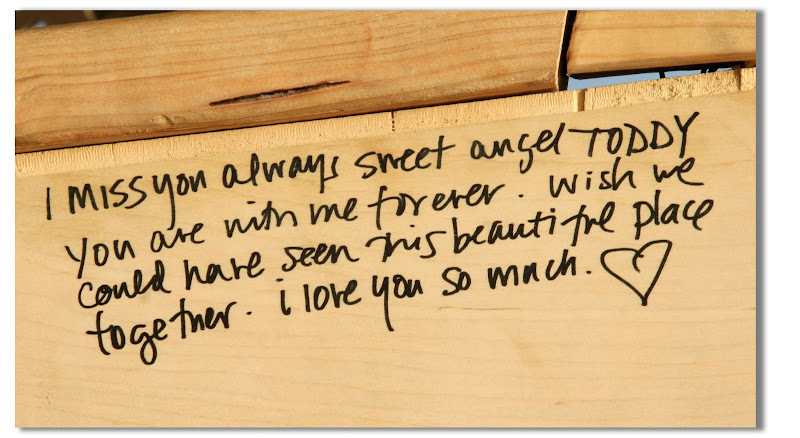 I MISS you always sweet angel TODDY
You are with me forever. Wish we
could have seen this beautiful place
together. i love you so much. ♡